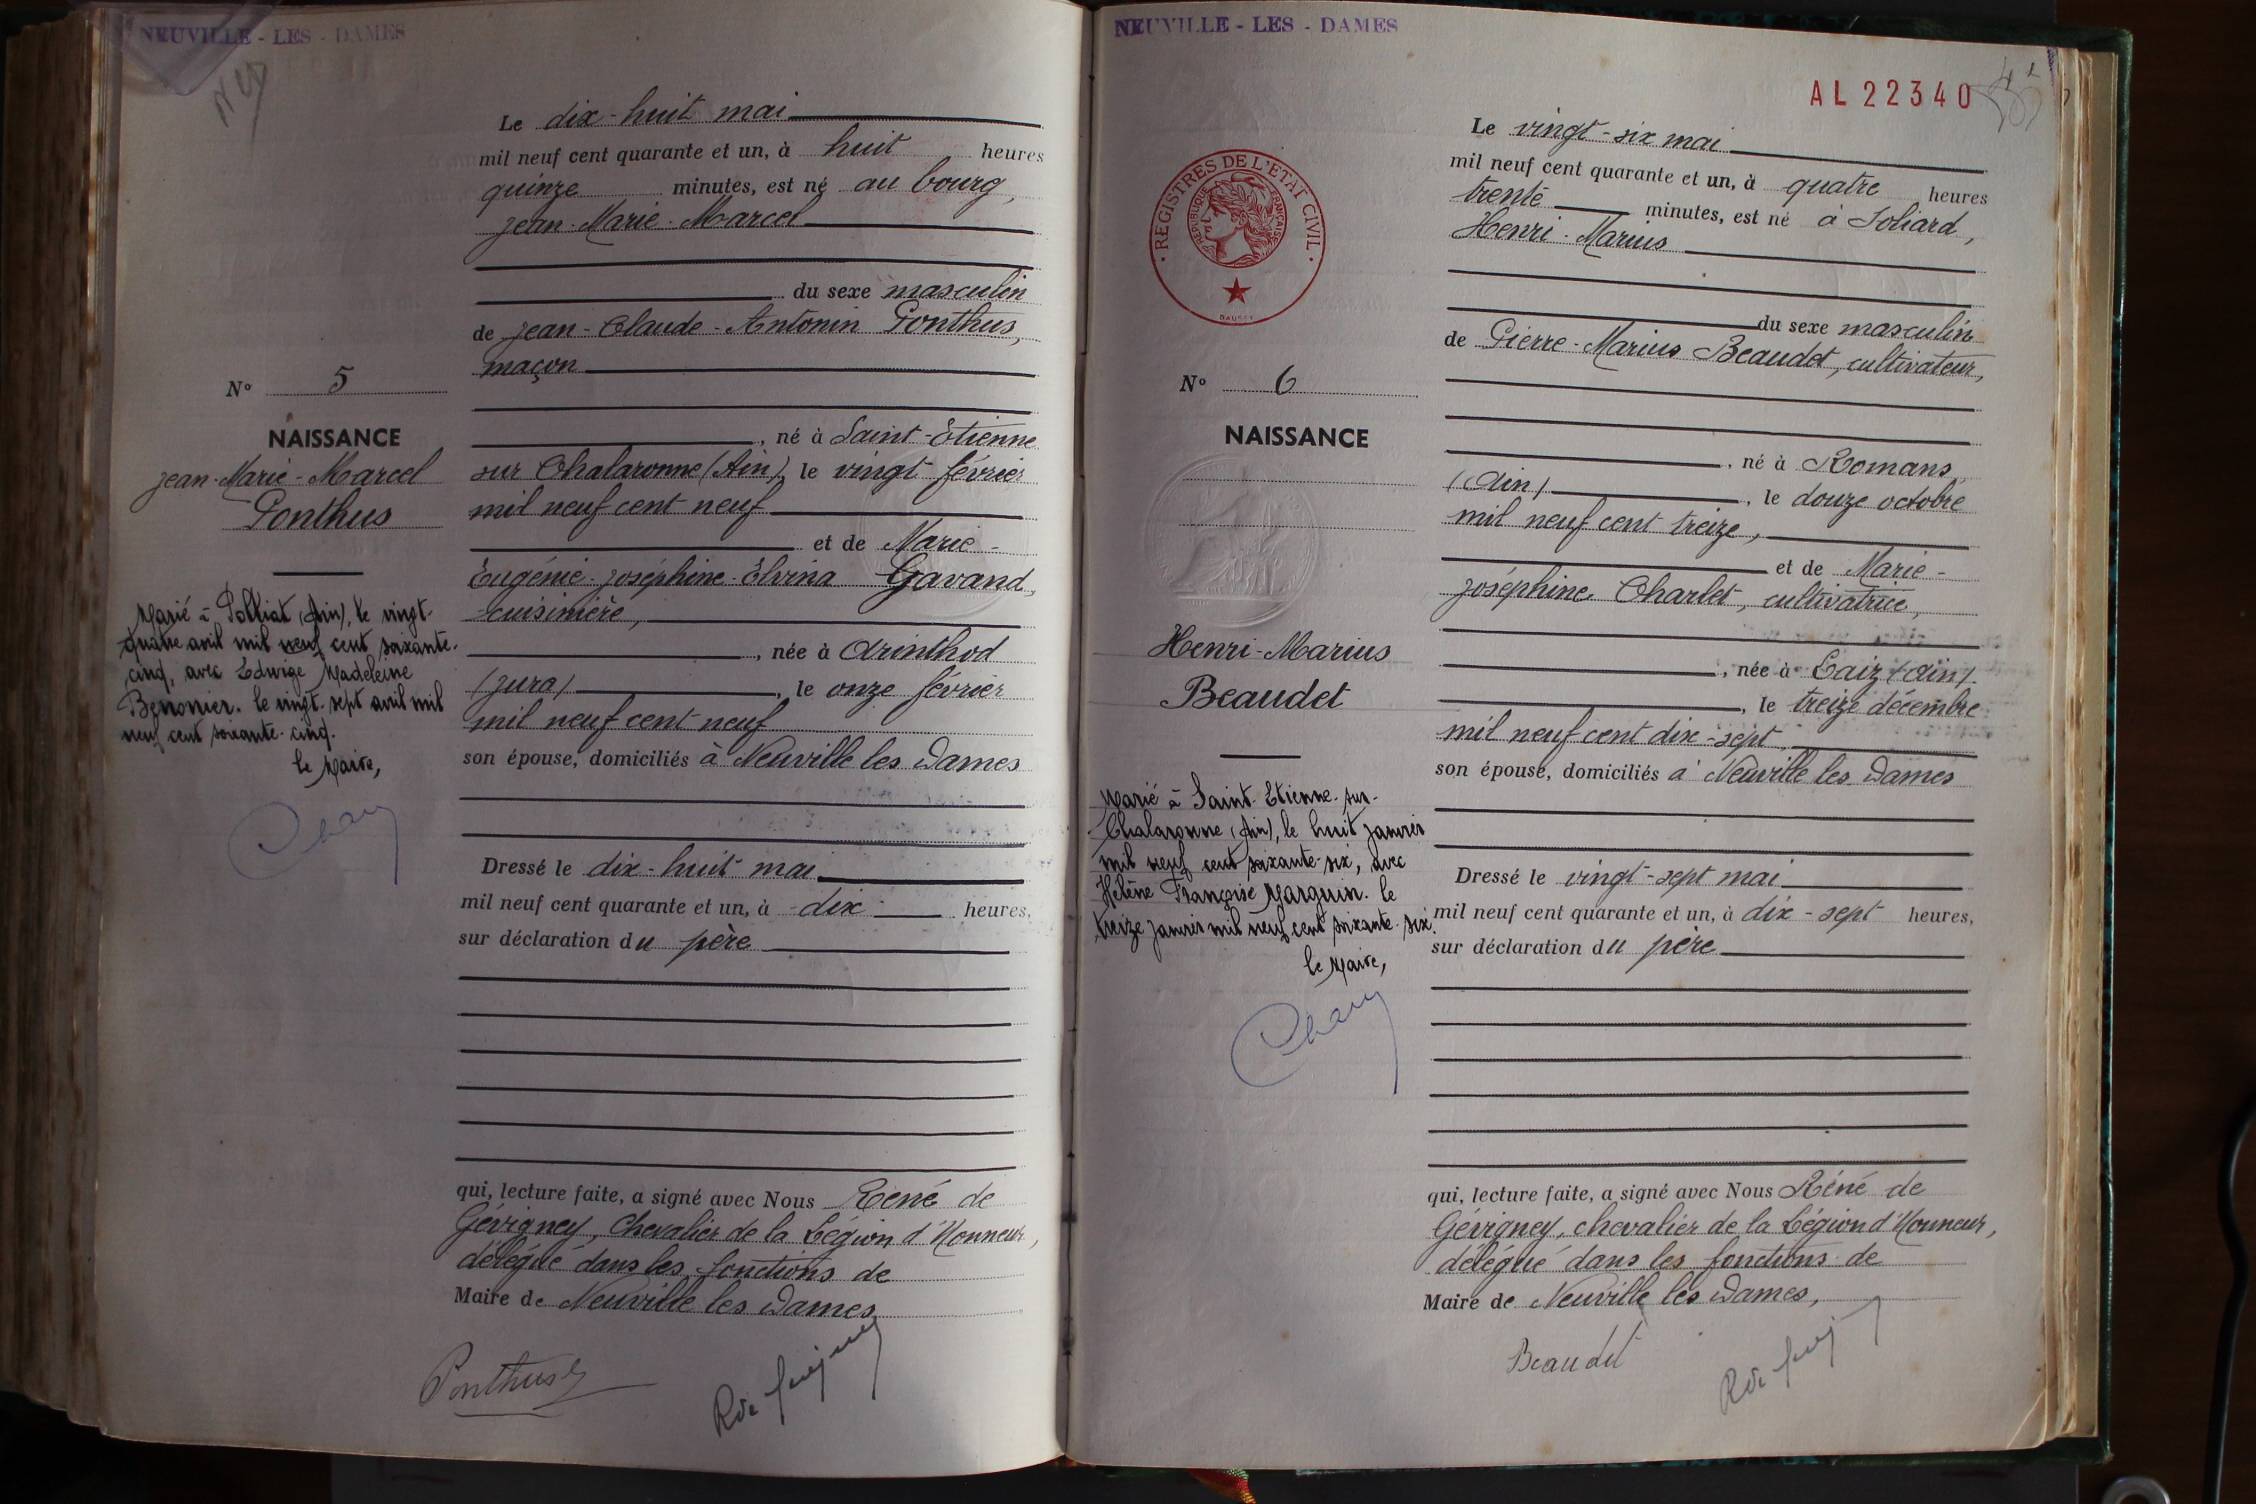 NEUVILLE - LES - DAMES
Le dix-huit mai
mil neuf cent quarante et un, à huit heures
quinze minutes, est né au bourg,
Jean-Marie-Marcel
du sexe masculin
de Jean-Claude-Antonin Ponthus,
maçon
, né à Saint-Etienne
sur Chalaronne (Ain), le vingt février
mil neuf cent neuf
et de Marie-
Eugénie-Joséphine-Elvina Gavand,
cuisinière,
, née à Arinthod
(Jura), le onze février
mil neuf cent neuf
son épouse, domiciliés à Neuville les Dames
Dressé le dix-huit mai
mil neuf cent quarante et un, à dix heures,
sur déclaration du père
qui, lecture faite, a signé avec Nous René de
Gévigney, Chevalier de la Légion d'Honneur,
délégué dans les fonctions de
Maire de Neuville les Dames
Ponthus
N° 5
NAISSANCE
Jean-Marie-Marcel
Ponthus
Marié à Polliat (Ain), le vingt-
quatre avril mil neuf cent soixante-
cinq, avec Edwige Madeleine
le vingt-sept avril mil
neuf cent soixante-cinq.
le Maire,
NEUVILLE - LES - DAMES
AL 22340
REGISTRES DE L'ETAT CIVIL
REPUBLIQUE FRANÇAISE
Le vingt-six mai
mil neuf cent quarante et un, à quatre heures
trente minutes, est né à Soliard,
Henri-Marius
du sexe masculin
de Pierre-Marius Beaudet, cultivateur,
, né à Romans
(Ain), le douze octobre
mil neuf cent treize,
et de Marie-
Joséphine Charlet, cultivatrice,
, née à Laiz (Ain).
, le treize décembre
mil neuf cent dix-sept,
son épouse, domiciliés à Neuville les Dames
Dressé le vingt-sept mai
mil neuf cent quarante et un, à dix-sept heures,
sur déclaration du père
qui, lecture faite, a signé avec Nous René de
Gévigney, chevalier de la Légion d'Honneur,
délégué dans les fonctions de
Maire de Neuville les Dames,
Beaudet
N° 6
NAISSANCE
Henri-Marius
Beaudet
Marié à Saint-Etienne-sur-
Chalaronne (Ain), le huit janvier
mil neuf cent soixante-six, avec
Hélène Françoise Marguin. le
treize janvier mil neuf cent soixante-six.
le Maire,